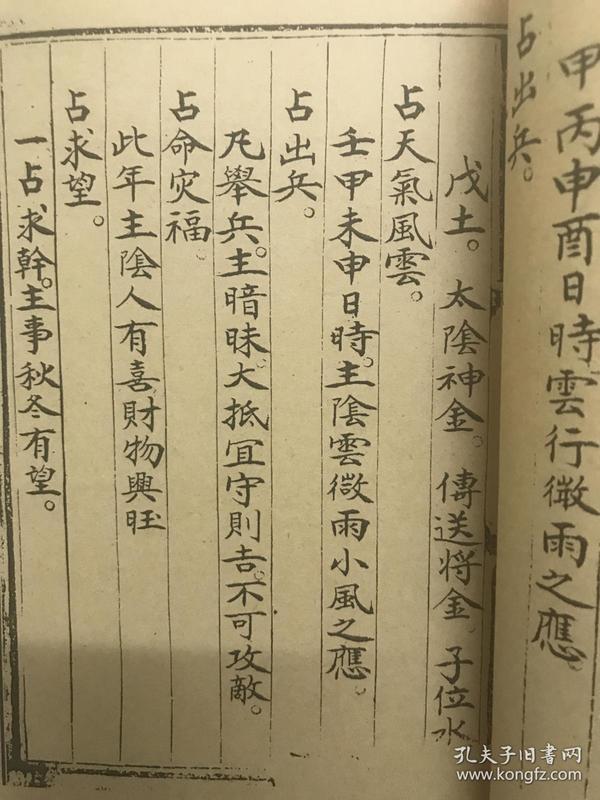 甲丙申酉日時雲行微雨之應。
占出兵。
戊土。太陰神金。傳送將金。子位水
占天氣風雲。
壬甲未申日時。主陰雲微雨小風之應。
占出兵。
凡舉兵。主暗昧。大抵宜守則吉。不可攻敵。
占命灾福。
此年主陰人有喜財物興旺
占求望。
一占求幹。主事秋冬有望。
孔夫子旧書网
www.kongfz.com